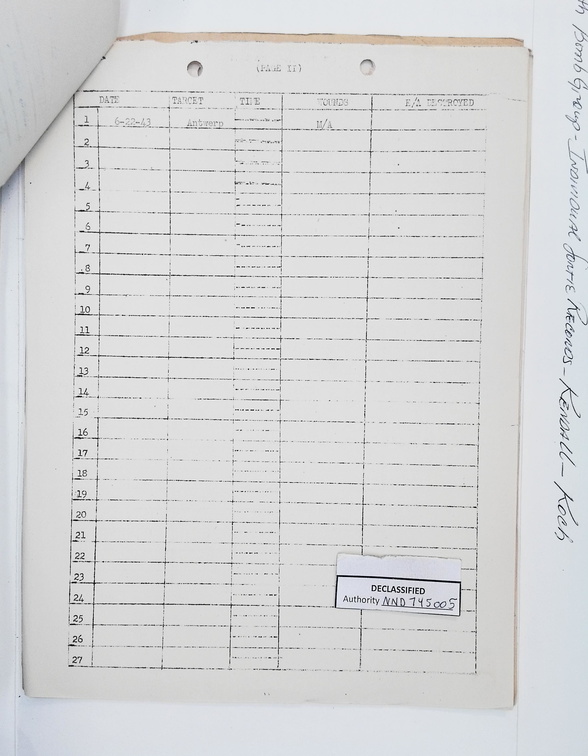 (PAGE II)
DATE TARGET TIME WOUNDS E/A DESTROYED
1 6-22-43 Antwerp M/A
2
3
4
5
6
7
8
9
10
11
12
13
14
15
16
17
18
19
20
21
22
23
24
25
26
27
DECLASSIFIED
Authority NND 745005
Bomb Group - Individual Sortie Records - Kendall - Koch